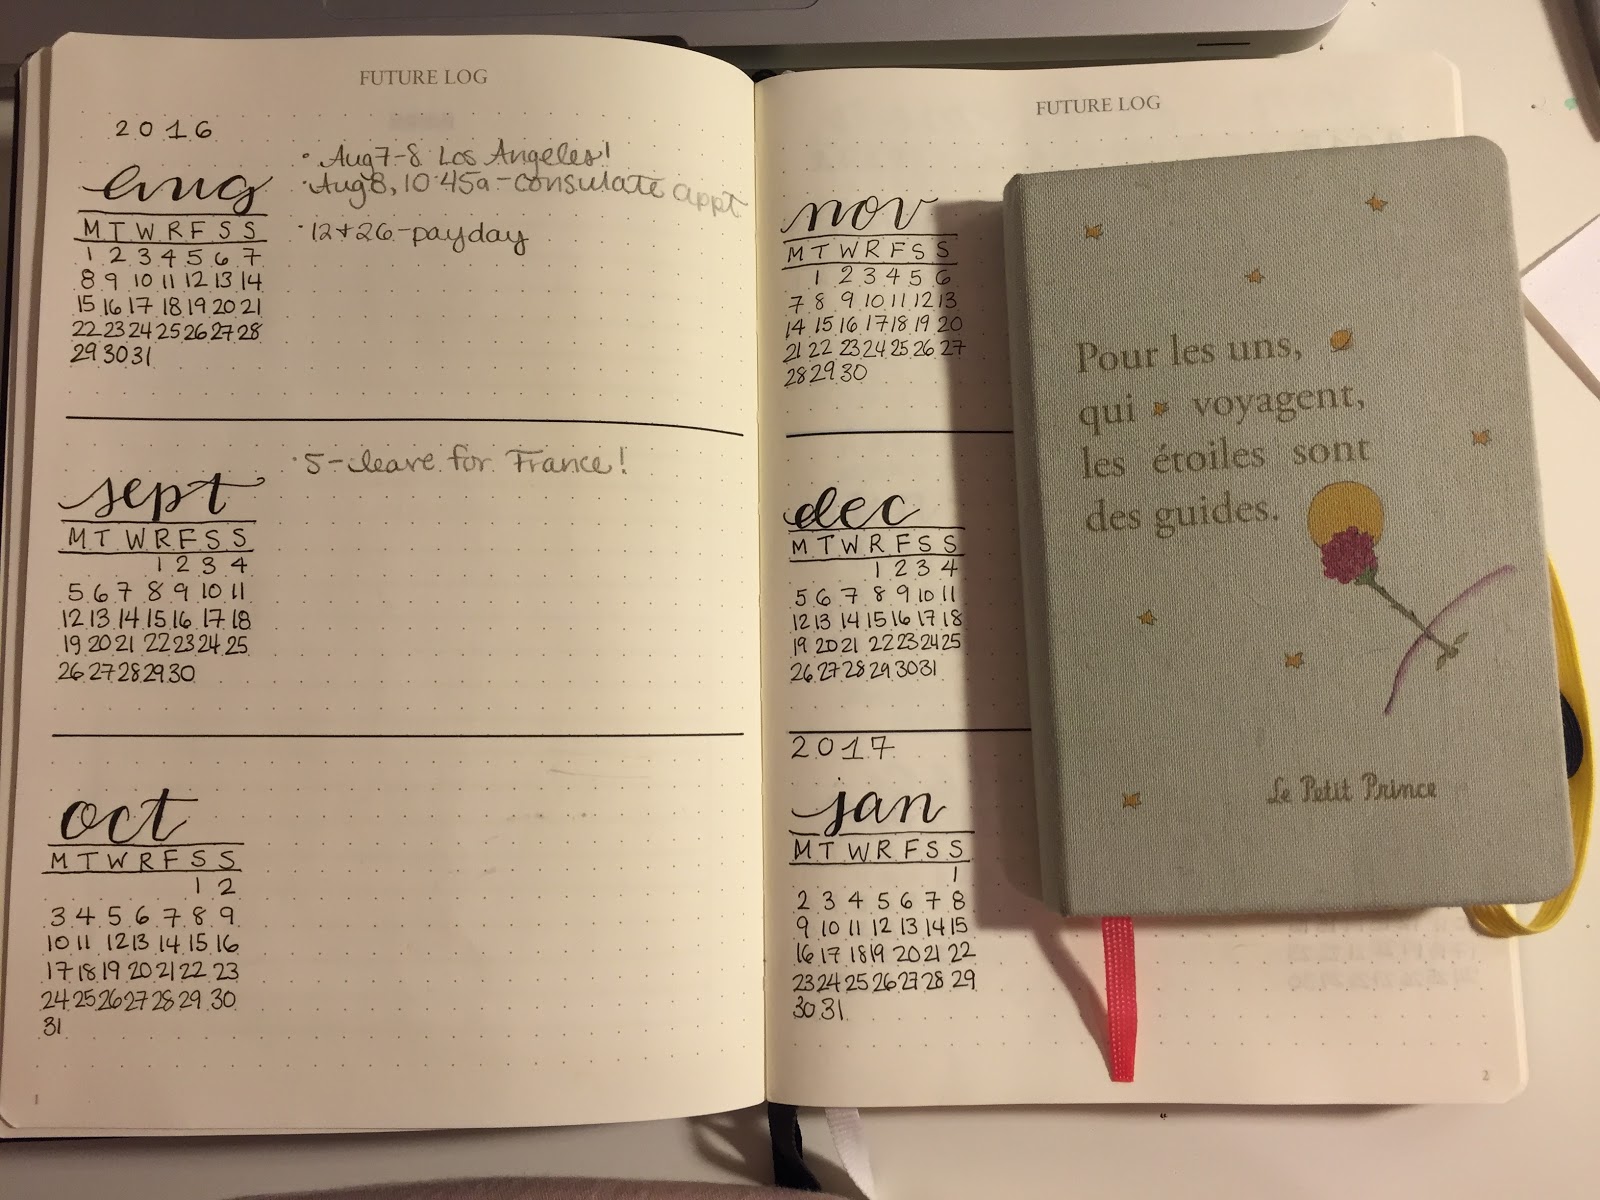 FUTURE LOG
2016
aug
M T W R F S S
1 2 3 4 5 6 7
8 9 10 11 12 13 14
15 16 17 18 19 20 21
22 23 24 25 26 27 28
29 30 31
· Aug 7-8 Los Angeles!
· Aug 8, 10:45a - consulate appt
· 12 + 26 - payday
sept
M T W R F S S
1 2 3 4
5 6 7 8 9 10 11
12 13 14 15 16 17 18
19 20 21 22 23 24 25
26 27 28 29 30
· 5 - leave for France!
oct
M T W R F S S
1 2
3 4 5 6 7 8 9
10 11 12 13 14 15 16
17 18 19 20 21 22 23
24 25 26 27 28 29 30
31
1
FUTURE LOG
nov
M T W R F S S
1 2 3 4 5 6
7 8 9 10 11 12 13
14 15 16 17 18 19 20
21 22 23 24 25 26 27
28 29 30
dec
M T W R F S S
1 2 3 4
5 6 7 8 9 10 11
12 13 14 15 16 17 18
19 20 21 22 23 24 25
26 27 28 29 30 31
2017
jan
M T W R F S S
1
2 3 4 5 6 7 8
9 10 11 12 13 14 15
16 17 18 19 20 21 22
23 24 25 26 27 28 29
30 31
2
Pour les uns,
qui voyagent,
les étoiles sont
des guides.
Le Petit Prince